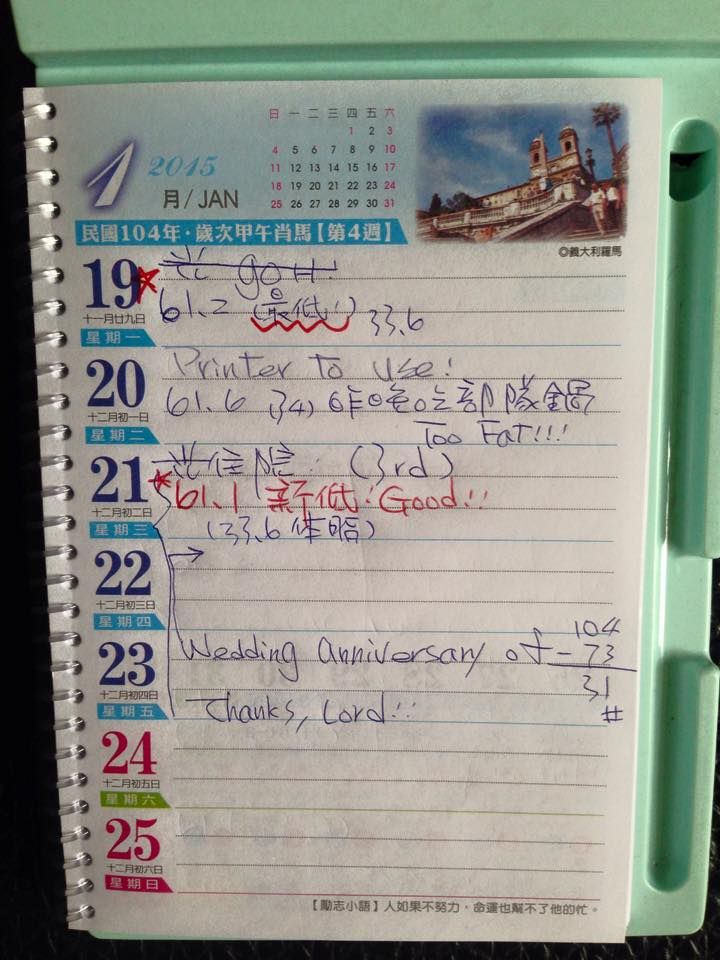 1 2015
月/JAN
日 一 二 三 四 五 六
1 2 3
4 5 6 7 8 9 10
11 12 13 14 15 16 17
18 19 20 21 22 23 24
25 26 27 28 29 30 31
民國104年・歲次甲午肖馬【第4週】
◎義大利羅馬
19
十一月廿九日
星期一
61.2 (最低!) 33.6
20
十二月初一日
星期二
Printer to use!
61.6 (34) 昨晚吃部隊鍋
Too Fat!!!
21
十二月初二日
星期三
(3rd)
61.1 新低! Good!!
(33.6 体脂)
22
十二月初三日
星期四
→
23
十二月初四日
星期五
Wedding Anniversary of
104
- 73
31
#
Thanks, Lord!!
24
十二月初五日
星期六
25
十二月初六日
星期日
【勵志小語】人如果不努力，命運也幫不了他的忙。